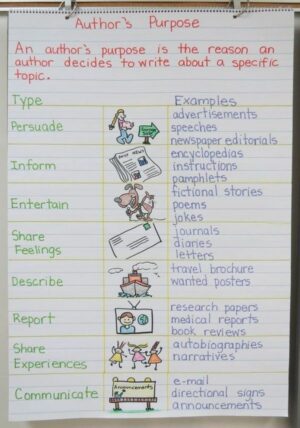 Author's Purpose
An author's purpose is the reason an
author decides to write about a specific
topic.
Type
Examples
Persuade
advertisements
speeches
newspaper editorials
Inform
encyclopedias
instructions
pamphlets
Entertain
fictional stories
poems
jokes
Share
Feelings
journals
diaries
letters
Describe
travel brochure
wanted posters
Report
research papers
medical reports
book reviews
Share
Experiences
autobiographies
narratives
Communicate
Announcements
e-mail
directional signs
announcements